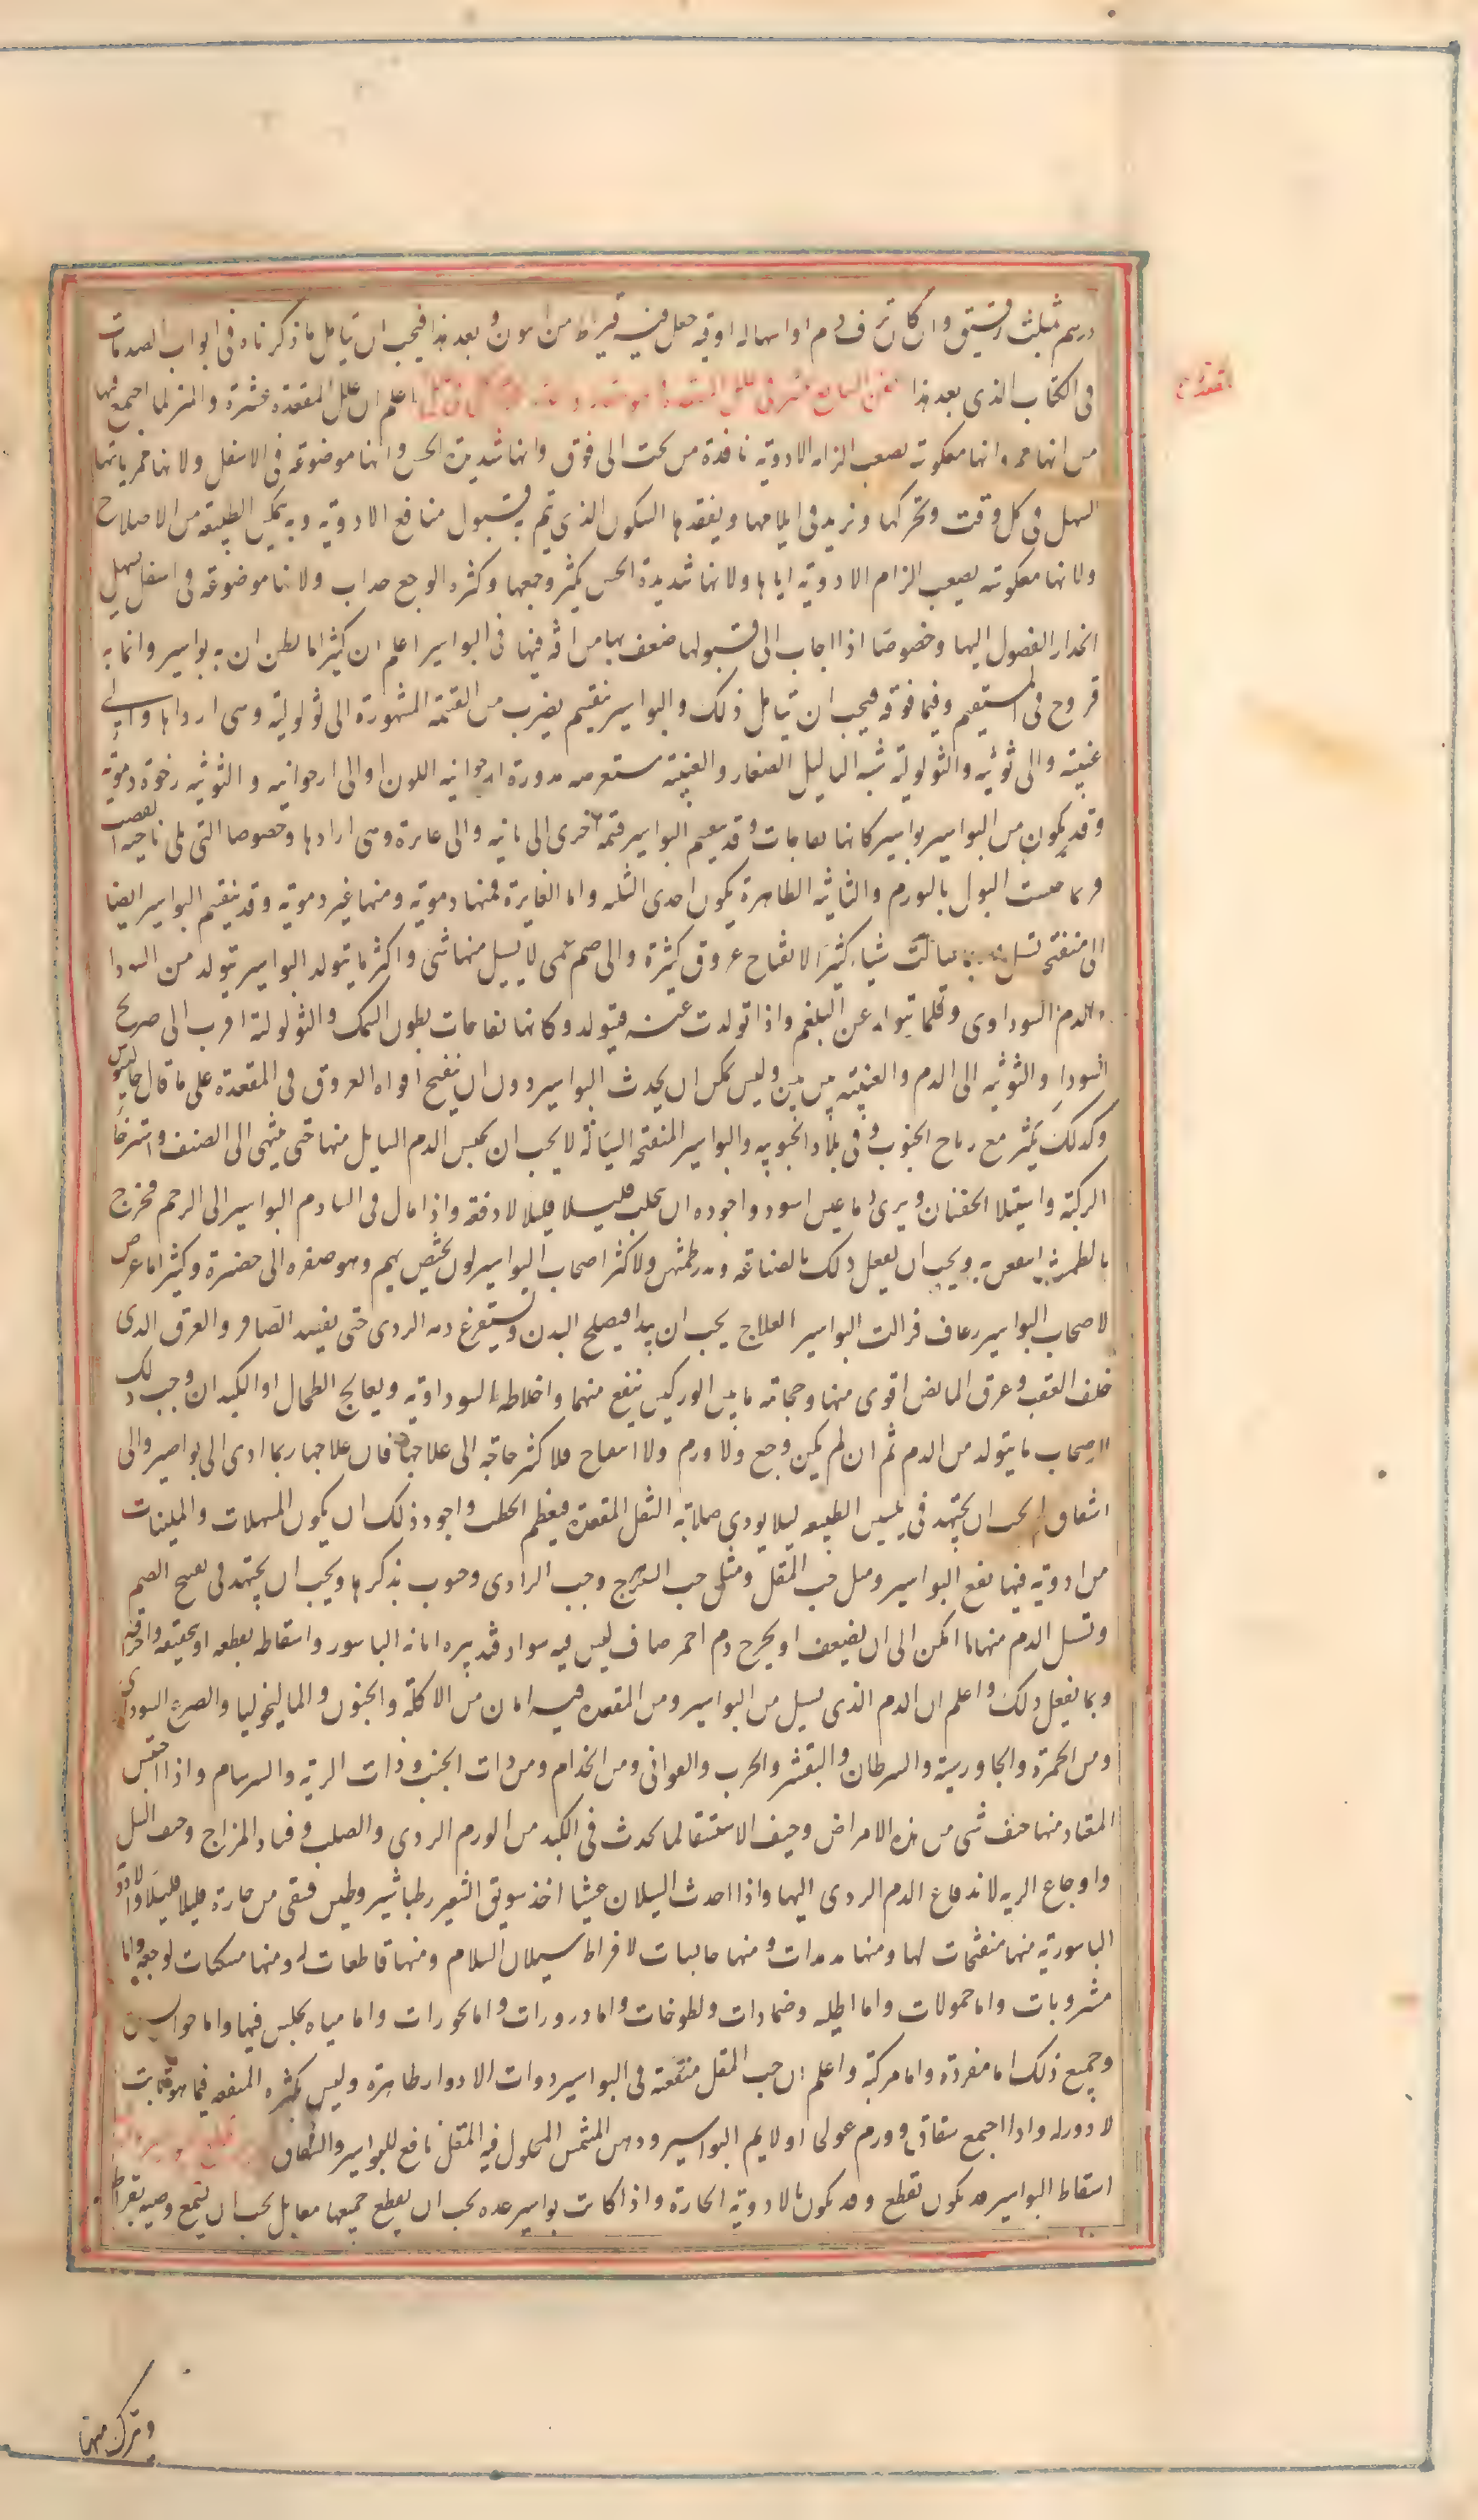 درهم مثلث رقيق وان كان نزف دم او اسهال اوقية جعل فيه قيراط من افيون وبعد هذا فيجب ان يتامل ما ذكرناه فى ابواب الصدمات
فى الكتاب الذى بعد هذا الفن السابع عشر فى علل المقعدة اعلم ان علل المقعدة عسرة والبرء لما اجتمع فيها
المقعدة
من انها ممر وانها معكوسة يصعب الزام الادوية نافذة من تحت الى فوق وانها شديدة الحس وانها موضوعة فى الاسفل ولانها ممر ياتيها
الثفل فى كل وقت وتحركها ويزيد فى ايلامها ويفقدها السكون الذى يتم به قبول منافع الادوية وبه يمكن الطبيعة من الاصلاح
ولانها معكوسة يصعب الزام الادوية اياها ولانها شديدة الحس يكثر وجعها وكثرة الوجع جذاب ولانها موضوعة فى اسفل يسهل
انحدار الفضول اليها وخصوصا اذا اجاب الى قبولها ضعف بها من آفة فيها فى البواسير اعلم ان كثيرا ما يظن ان به بواسير وانما به
قروح فى المستقيم وفيما فوقه فيجب ان تيامل ذلك والبواسير ينقسم بضرب من القسمة المشهورة الى ثولولية وهى ارداها والى
عنبية والى توثية والثولولية شبه الثآليل الصغار والعنبية مستعرضة مدورة ارجوانية اللون او الى ارجوانية والتوثية رخوة دموية
وقد يكون من البواسير بواسير كانها نفاخات وقد ينقسم البواسير قسمة اخرى الى ناتية والى غايرة وهى ارداها وخصوصا التى تلى ناحية القضيب
فربما حبست البول بالورم والناتية الظاهرة يكون احدى الثلثة واما الغايرة فمنها دموية ومنها غير دموية وقد ينقسم البواسير ايضا
الى منفتحة تسيل وربما سالت شيئا كثيرا لانفتاح عروق كثيرة والى صم عمى لا يسيل منها شى واكثر ما يتولد البواسير يتولد من السودا
والدم السوداوى وقلما يتولد عن البلغم واذا تولدت عنه فيتولد وكانها نفاخات بطون السمك والثولولية اقرب الى صريح
السودا والتوثية الى الدم والعنبية بين بين وليس يمكن ان يحدث البواسير دون ان ينفتح افواه العروق فى المقعدة على ما قال جالينوس
وكذلك يكثر مع رياح الجنوب وفى بلاد الجنوبية والبواسير المنفتحة السيالة لا يجب ان يحبس الدم السايل منها حتى ينتهى الى الضعف واسترخا
الركبة واستيلا الخفقان ويرى دما غير اسود واجوده ان يتحلب قليلا قليلا لا دفعة واذا مال فى النسا دم البواسير الى الرحم فخرج
بالطمث انتفعن به ويجب ان يفعل ذلك بالصناعة ويدر طمثهن ولاكثر اصحاب البواسير لون يختص بهم وهو صفرة الى خضرة وكثيرا ما عرض
لاصحاب البواسير رعاف فزالت البواسير العلاج يجب ان يبدا فيصلح البدن ويستفرغ دمه الردى حتى يفصد الصافن والعرق الذى
خلف العقب وعرق المابض اقوى منها وحجامة ما بين الوركين ينفع منهما واخلاطه السوداوية ويعالج الطحال او الكبد ان وجب ذلك
لاصحاب ما يتولد من الدم ثم ان لم يكن وجع ولا ورم ولا انتفاخ فلا كثر حاجة الى علاجها فان علاجها ربما ادى الى نواصير والى
شقاق ثم يجب ان يجتهد فى تليين الطبيعة ليلا يودى صلابة الثفل المقعدة فيعظم الخطب واجود ذلك ان يكون المسهلات والملينات
من ادوية فيها نفع البواسير ومثل حب المقل ومثل حب السورنج وحب الدادى وحبوب نذكرها ويجب ان يجتهد فى تفتيح الصم
وتسيل الدم منها ما امكن الى ان يضعف او يخرج دم احمر صاف ليس فيه سواد فتدبيره ابانة الباسور واسقاطه بقطعه او تجفيفه واحراقه
وبما يفعل ذلك واعلم ان الدم الذى يسيل من البواسير ومن المقعدة فيه امان من الاكلة والجنون والماليخوليا والصرع السوداوى
ومن الحمرة والجاورسية والسرطان والتقشر والجرب والقوابى ومن الجذام ومن ذات الجنب وذات الرية والسرسام واذا احتبس
المعتاد منها خيف شى من هذه الامراض وخيف الاستسقا لما يحدث فى الكبد من الورم الردى والصلب وفساد المزاج وخيف السل
واوجاع الرية لاندفاع الدم الردى اليها واذا احدث السيلان غشيا اخذ سويق الشعير بطباشير وطين فسقى من حاره قليلا قليلا والادوية
الباسورية منها مفتحات لها ومنها مدملات ومنها حابسات لافراط سيلان الدم ومنها قاطعات له ومنها مسكنات لوجعه واما
مشروبات واما حمولات واما اطلية وضمادات ولطوخات واما ذرورات واما بخورات واما مياه يجلس فيها واما حوابس
وجميع ذلك اما مفردة واما مركبة واعلم ان حب المقل منفعته فى البواسير ذوات الادوار ظاهرة وليس بكثيرة المنفعة فيما هو ثابت
لا دور له واذا اجتمع شقاق وورم عولجا اولا ثم البواسير ودهن المشمش المحلول فيه المقل نافع للبواسير والشقاق
اسقاط البواسير قد يكون بقطع وقد يكون بالادوية الحارة واذا كانت بواسير عدة يجب ان يقطع جميعها معا بل يجب ان يتبع وصية بقراط
وتترك منها